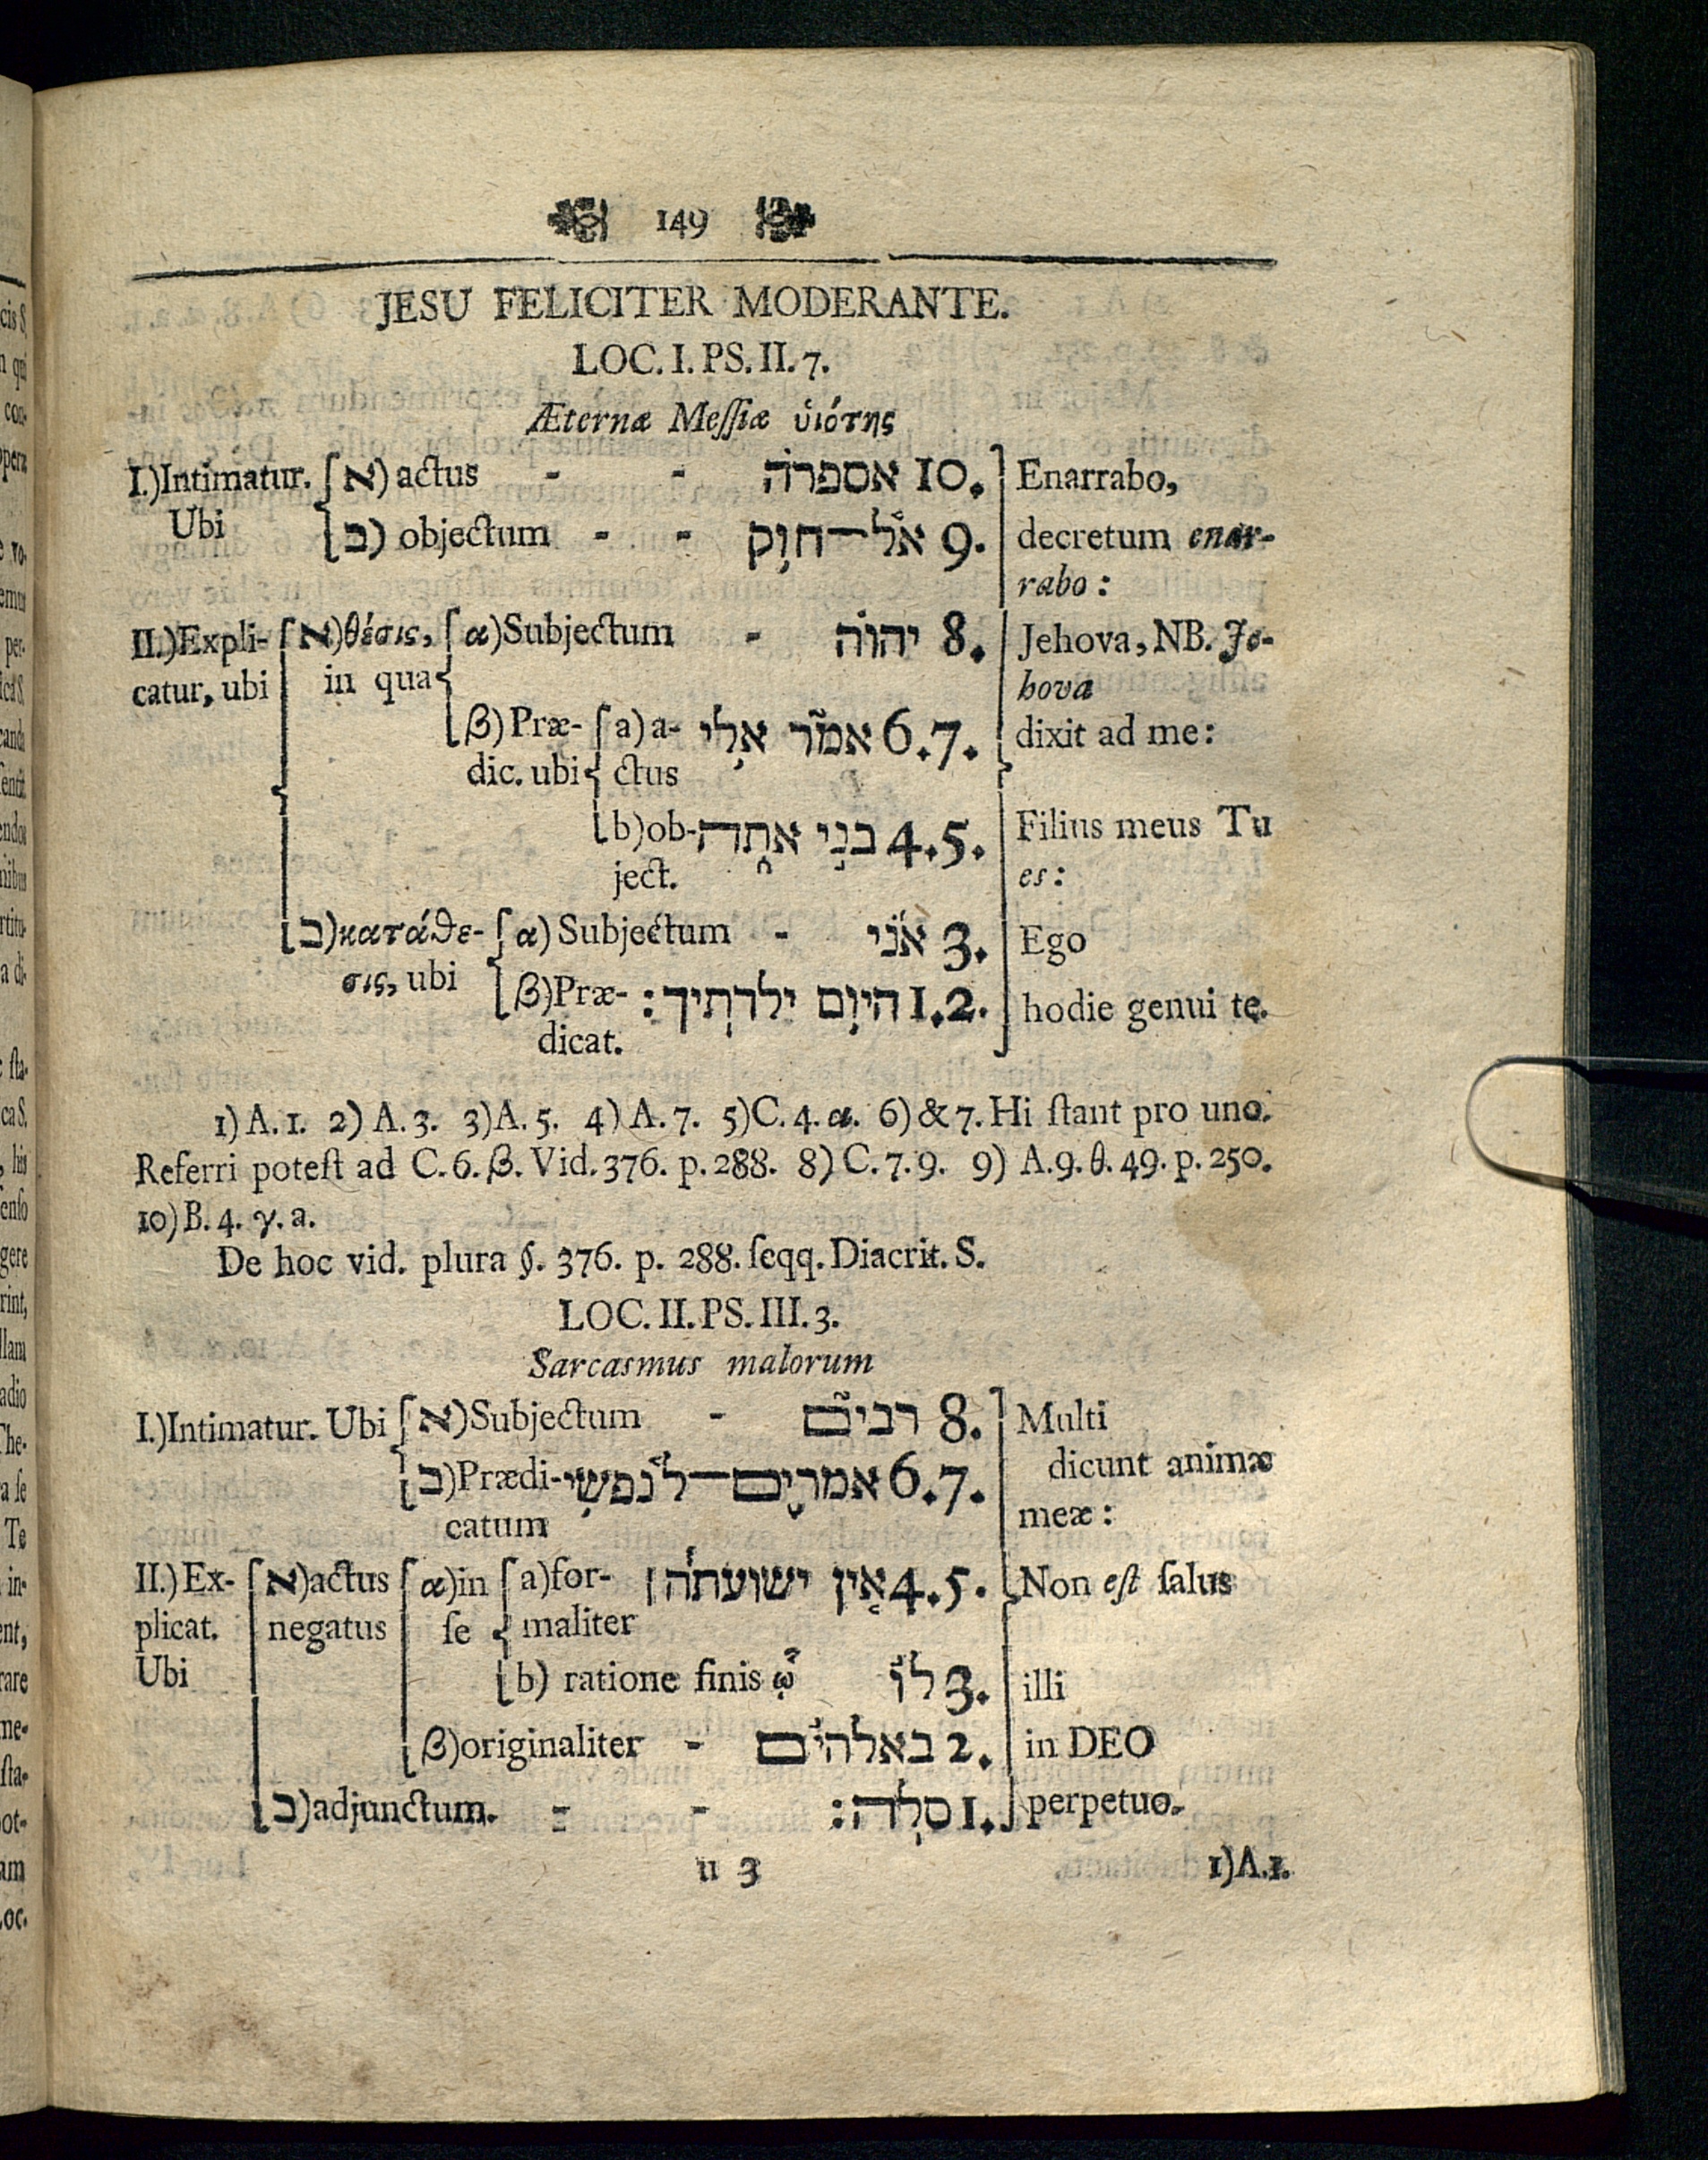 149
JESU FELICITER MODERANTE.
LOC. I. PS. II. 7.
Æternæ Meſſiæ ὑιότης
I.) Intimatur. א) actus - - אספרה 10. Enarrabo,
Ubi ב) objectum - - אל־חוק 9. decretum enar-
rabo:
II.) Expli- א) θέσις, α) Subjectum - יהוה 8. Jehova, NB. Je-
catur, ubi in qua hova
β) Præ- a) a- אמר אלי 6.7. dixit ad me:
dic. ubi ctus
b) ob- בני אתה 4.5. Filius meus Tu
ject. es:
ב) κατάθε- α) Subjectum - אני 3. Ego
σις, ubi β) Præ- היום ילדתיך: 1.2. hodie genui te.
dicat.
1) A. 1. 2) A. 3. 3) A. 5. 4) A. 7. 5) C. 4. α. 6) & 7. Hi ſtant pro uno.
Referri poteſt ad C. 6. β. Vid. 376. p. 288. 8) C. 7. 9. 9) A. 9. θ. 49. p. 250.
10) B. 4. γ. a.
De hoc vid. plura §. 376. p. 288. ſeqq. Diacrit. S.
LOC. II. PS. III. 3.
Sarcasmus malorum
I.) Intimatur. Ubi א) Subjectum - רבים 8. Multi
ב) Prædi- אמרים־לנפשי 6.7. dicunt animæ
catum meæ:
II.) Ex- א) actus α) in a) for- אין ישועתה 4.5. Non eſt ſalus
plicat. negatus ſe maliter
Ubi b) ratione finis לו 3. illi
β) originaliter - באלהים 2. in DEO
ב) adjunctum. - - סלה: 1. perpetuo.
u 3 1) A. 1.